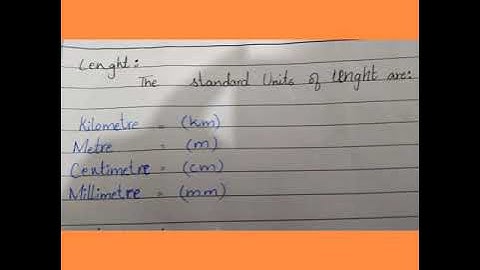 Lenght:
The standard Units of lenght are:
Kilometre = (km)
Metre = (m)
Centimetre = (cm)
Millimetre = (mm)